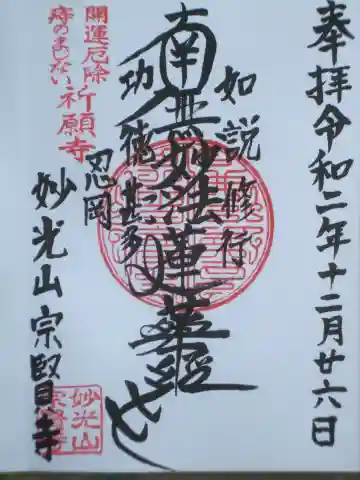 奉拝令和二年十二月廿六日
如説修行
南無妙法蓮華経
功徳甚多
忍岡
妙光山宗賢寺
開運厄除
痔のまじない
祈願寺
妙光山
宗賢寺